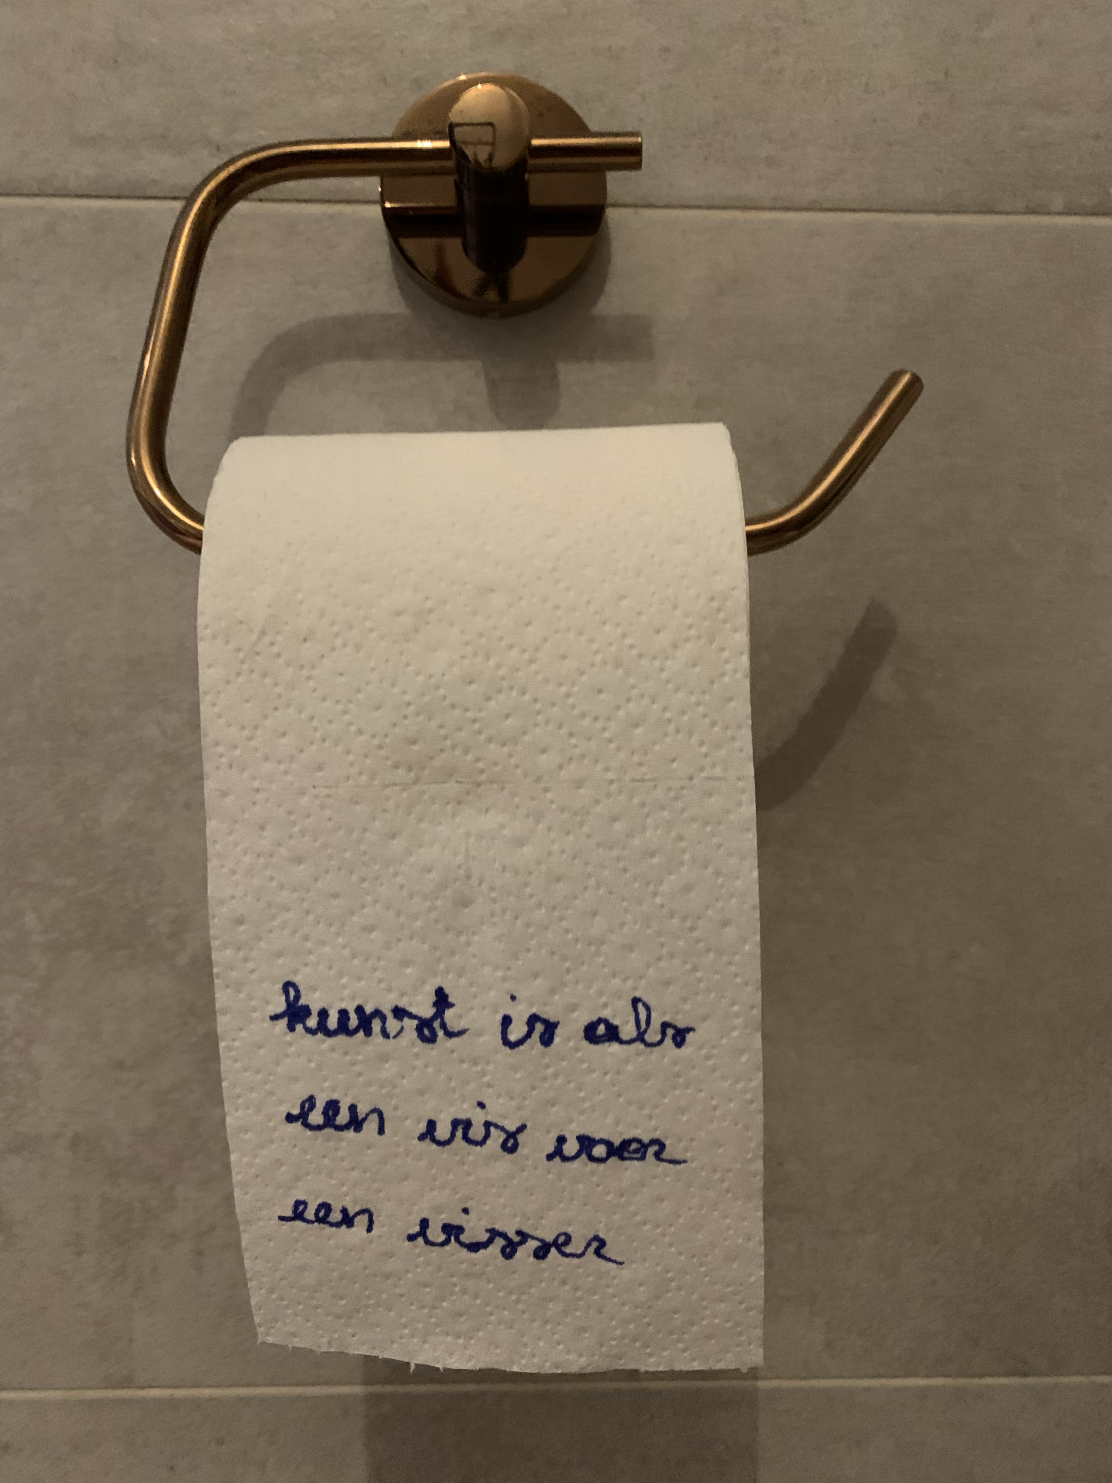 kunst is als
een vis voor
een visser